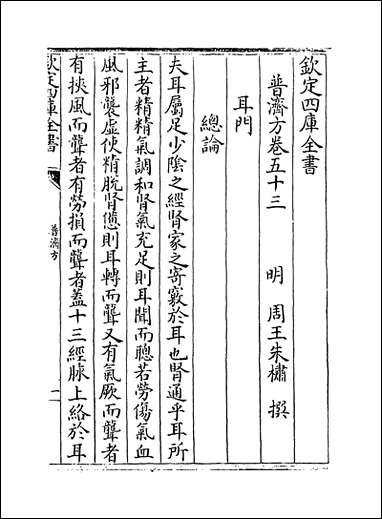 欽定四庫全書
普濟方卷五十三
明 周王朱橚 撰
耳門
總論
夫耳屬足少陰之經腎家之寄竅於耳也腎通乎耳所
主者精精氣調和腎氣充足則耳聞而聰若勞傷氣血
風邪襲虛使精脫腎憊則耳轉而聾又有氣厥而聾者
有挾風而聾者有勞損而聾者蓋十三經脉上絡於耳
欽定四庫全書
普濟方
一